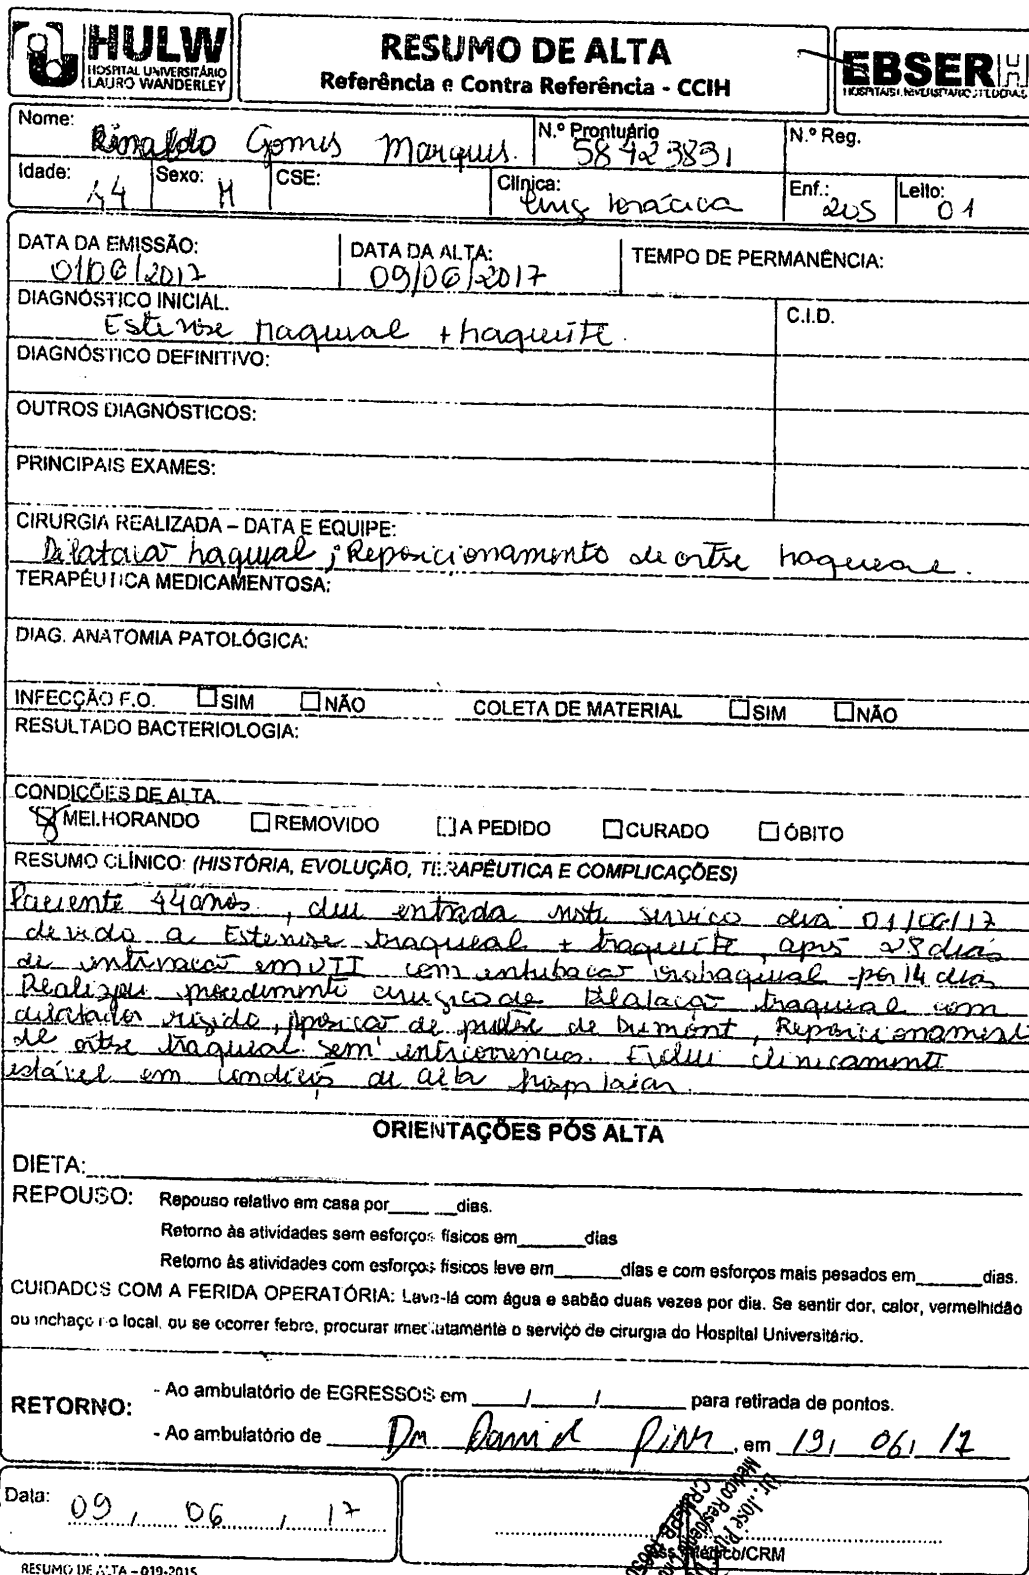 HULW
HOSPITAL UNIVERSITÁRIO
LAURO WANDERLEY
RESUMO DE ALTA
Referência e Contra Referência - CCIH
EBSERH
HOSPITAIS UNIVERSITÁRIOS FEDERAIS
Nome: Rinaldo Gomes Marques. N.º Prontuário 58423831 N.º Reg.
Idade: 44 Sexo: M CSE: Clínica: Cirug torácica Enf.: 205 Leito: 01
DATA DA EMISSÃO: 01/06/2017 DATA DA ALTA: 09/06/2017 TEMPO DE PERMANÊNCIA:
DIAGNÓSTICO INICIAL. C.I.D.
Estenose traqueal + traqueíte.
DIAGNÓSTICO DEFINITIVO:
OUTROS DIAGNÓSTICOS:
PRINCIPAIS EXAMES:
CIRURGIA REALIZADA – DATA E EQUIPE:
Dilatação traqueal; Reposicionamento de ortse traqueal.
TERAPÊUTICA MEDICAMENTOSA:
DIAG. ANATOMIA PATOLÓGICA:
INFECÇÃO F.O. ☐SIM ☐NÃO COLETA DE MATERIAL ☐SIM ☐NÃO
RESULTADO BACTERIOLOGIA:
CONDIÇÕES DE ALTA
☒MELHORANDO ☐REMOVIDO ☐A PEDIDO ☐CURADO ☐ÓBITO
RESUMO CLÍNICO: (HISTÓRIA, EVOLUÇÃO, TERAPÊUTICA E COMPLICAÇÕES)
Paciente 44 anos, deu entrada neste serviço dia 01/06/17
devido a Estenose traqueal + traqueíte, após 28 dias
de internação em UTI com entubação orotraqueal por 14 dias
Realizou procedimento cirúrgico de Dilatação traqueal com
dilatador rígido, aposição de de Dumont, Reposicionament
de ortse traqueal sem intercorrências. Evolui clinicamente
estável em condições de alta hospitalar.
ORIENTAÇÕES PÓS ALTA
DIETA:
REPOUSO: Repouso relativo em casa por____ __dias.
Retorno às atividades sem esforços físicos em______dias
Retorno às atividades com esforços físicos leve em______dias e com esforços mais pesados em______dias.
CUIDADOS COM A FERIDA OPERATÓRIA: Lave-lá com água e sabão duas vezes por dia. Se sentir dor, calor, vermelhidão
ou inchaço no local, ou se ocorrer febre, procurar imediatamente o serviço de cirurgia do Hospital Universitário.
RETORNO: - Ao ambulatório de EGRESSOS em ____/____/____ para retirada de pontos.
- Ao ambulatório de Dr Daniel , em 19/ 06/ 17
Data: 09 / 06 / 17
Dr. José
Médico Residente
Ass. Médico/CRM
RESUMO DE ALTA – 019-2015